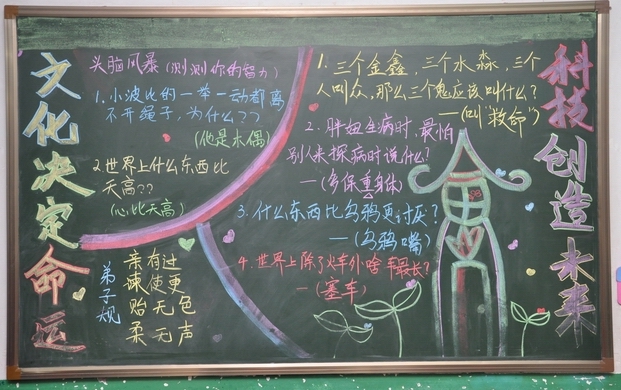 文化决定命运
头脑风暴(测测你的智力)
1.小波比的一举一动都离
不开绳子,为什么??
(他是木偶)
2.世界上什么东西比
天高??
(心比天高)
弟子规
亲有过
谏使更
贻无色
柔无声
1.三个金鑫,三个水淼,三个
人叫众,那么三个鬼应该叫什么?
——(叫"救命")
2.胖妞生病时,最怕
别人来探病时说什么?
——(多保重身体)
3.什么东西比乌鸦更讨厌?
——(乌鸦嘴)
4.世界上除了火车外啥车最长?
—(塞车)
科技创造未来